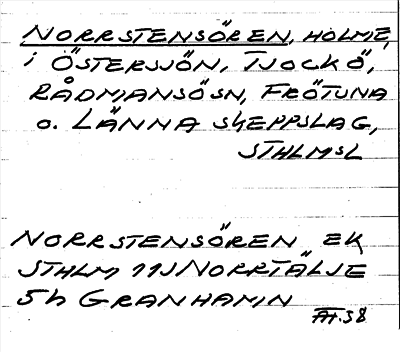 NORRSTENSÖREN, HOLME,
i ÖSTERSJÖN, TJOCKÖ,
RÅDMANSÖSN, FRÖTUNA
o. LÄNNA SKEPPSLAG,
STHLMSL
NORRSTENSÖREN EK
STHLM 11J NORRTÄLJE
5h GRANHAMN